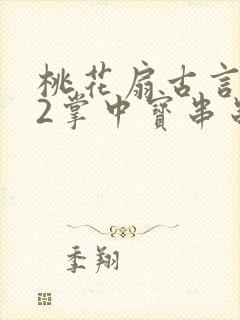 桃花扇古言
2掌中寳串
季翔